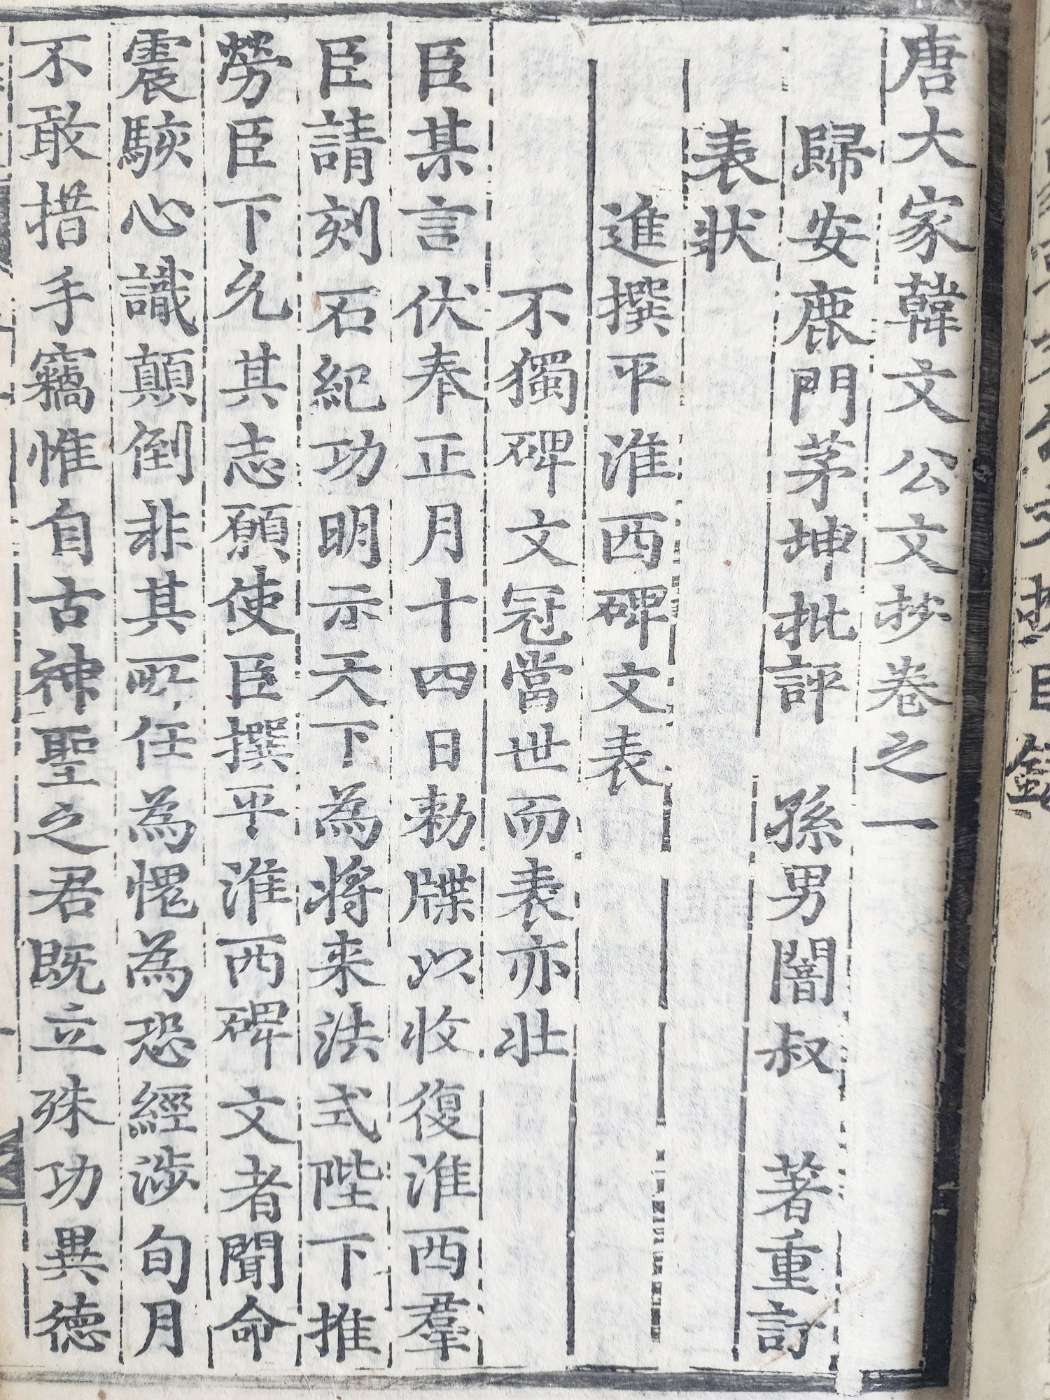 唐大家韓文公文抄卷之一
歸安鹿門茅坤批評 孫男闇叔 著重訂
表狀
進撰平淮西碑文表
不獨碑文冠當世而表亦壯
臣某言伏奉正月十四日勑牒以收復淮西羣
臣請刻石紀功明示天下為將来法式陛下推
勞臣下允其志願使臣撰平淮西碑文者聞命
震駭心識顛倒非其所任為愧為恐經涉旬月
不敢措手竊惟自古神聖之君既立殊功異德